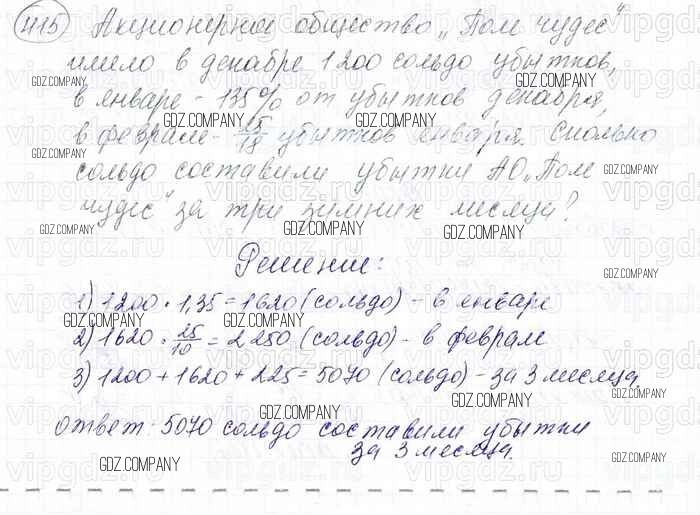 415 Акционерное общество „Поле чудес“
имело в декабре 1200 сольдо убытков,
в январе - 135% от убытков декабря,
в феврале - 25/18 убытков января. Сколько
сольдо составили убытки АО „Поле
чудес“ за три зимних месяца?
Решение:
1) 1200 · 1,35 = 1620 (сольдо) - в январе
2) 1620 · 25/10 = 2250 (сольдо) - в феврале
3) 1200 + 1620 + 225 = 5070 (сольдо) - за 3 месяца.
ответ: 5070 сольдо составили убытки
за 3 месяца.